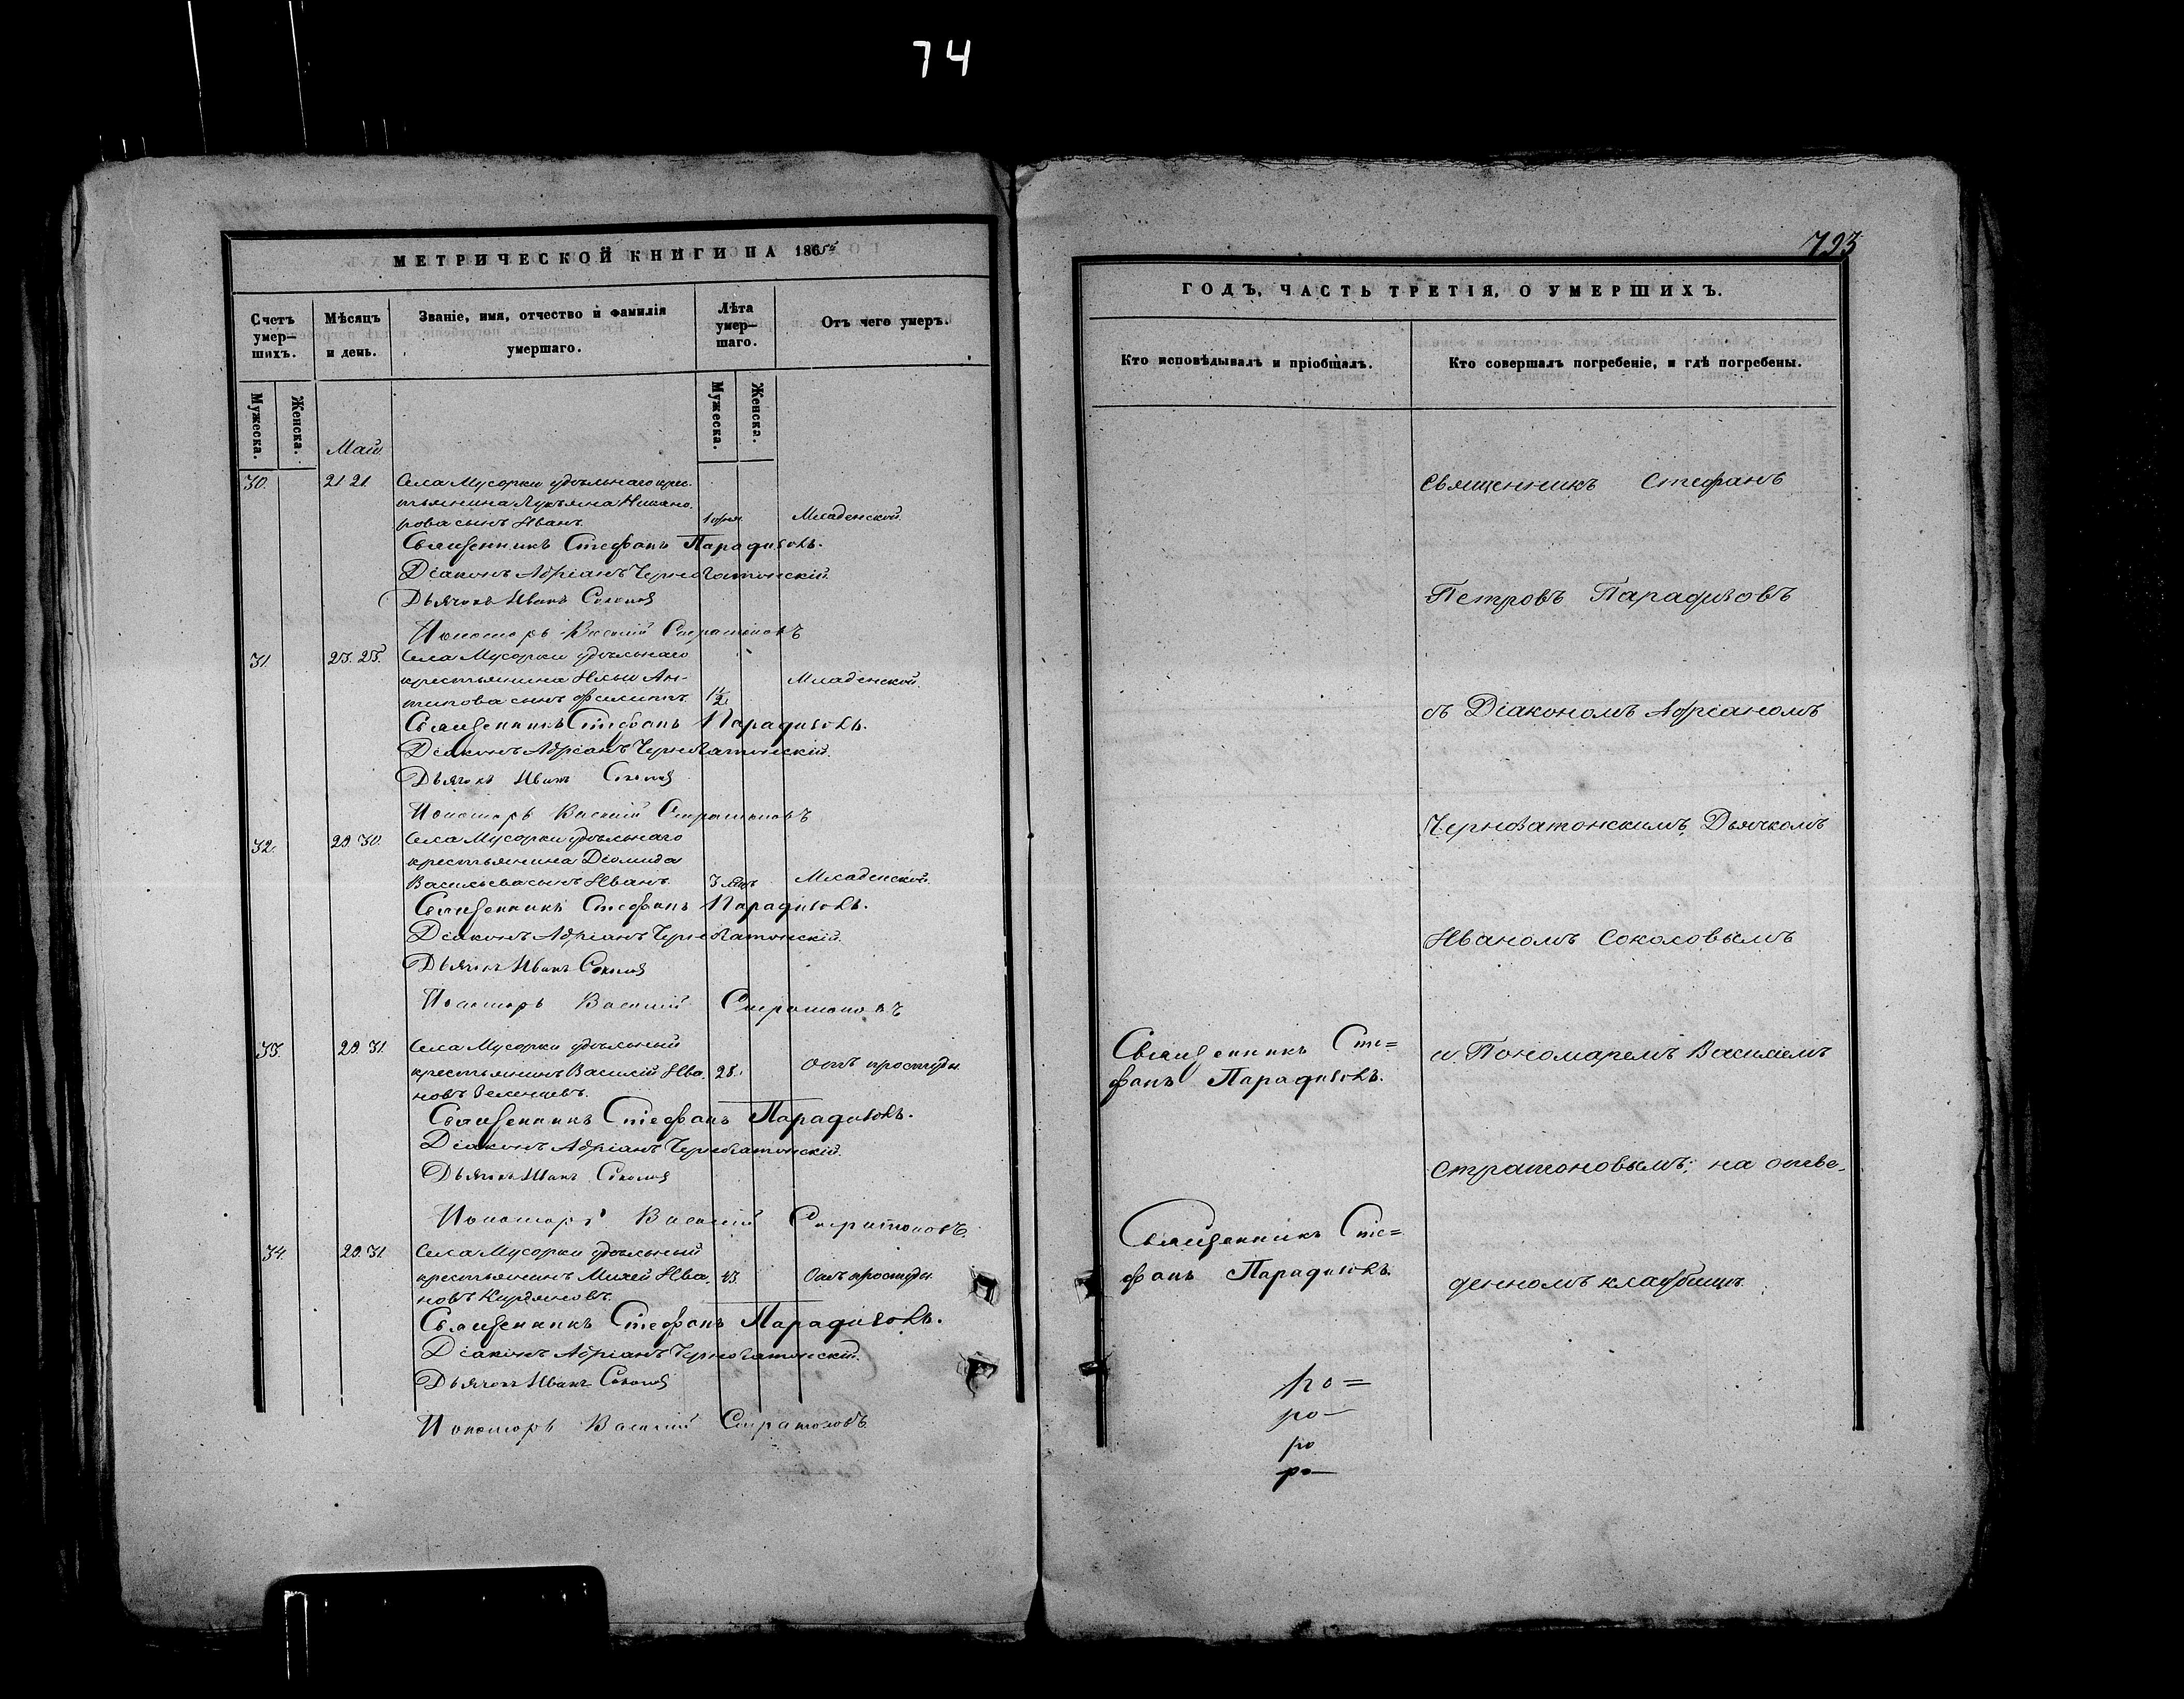 74
МЕТРИЧЕСКОЙ КНИГИ НА 1865й
Счетъ умер-шихъ.
Мѣсяцъ и день.
Званіе, имя, отчество и фамилія умершаго.
Лѣта умер-шаго.
Отъ чего умеръ.
Мужеска.
Женска.
Мужеска.
Женска.
Май
30. 21 21. Села Мусорки удѣльнаго крес-
тьянина Лукьяна Никано-
рова сынъ Иванъ. Младенской.
Священникъ Стефанъ Парадизовъ.
Діаконъ Адріанъ Черноватонскій.
Дьячокъ Иванъ Соколов
Пономарь Василій Стратоновъ
31. 23. 25. Села Мусорки удѣльнаго
крестьянина Ильи Ан- Младенской.
типова сынъ Филиппъ. 1½
Священникъ Стефанъ Парадизовъ.
Діаконъ Адріанъ Черноватонскій.
Дьячокъ Иванъ Соколов
Пономарь Василій Стратоновъ
32. 29 30. Села Мусорки удѣльнаго
крестьянина Діомида
Васильева сынъ Иванъ. 3 Младенской.
Священникъ Стефанъ Парадизовъ.
Діаконъ Адріанъ Черноватонскій.
Дьячокъ Иванъ Соколов
Пономарь Василій Стратоновъ
33. 29. 31. Села Мусорки удѣльный
крестьянинъ Василій Ива- 28. Отъ простуды
новъ Зеленцевъ.
Священникъ Стефанъ Парадизовъ.
Діаконъ Адріанъ Черноватонскій.
Дьячокъ Иванъ Соколов
Пономарь Василій Стратоновъ
34. 29. 31. Села Мусорки удѣльный
крестьянинъ Михей Ива- 43. Отъ простуды
новъ Кирдяновъ.
Священникъ Стефанъ Парадизовъ.
Діаконъ Адріанъ Черноватонскій.
Дьячокъ Иванъ Соколов
Пономарь Василій Стратоновъ
793
ГОДЪ, ЧАСТЬ ТРЕТІЯ, О УМЕРШИХЪ.
Кто исповѣдывалъ и пріобщалъ.
Кто совершалъ погребеніе, и гдѣ погребены.
Священникъ Стефанъ
Петровъ Парадизовъ
съ Діакономъ Адріаномъ
Черноватонскимъ, Дьячкомъ
Иваномъ Соколовымъ
и Пономаремъ Василіемъ
Стратоновымъ; на отве-
денномъ кладбищѣ.
Священникъ Сте=
фанъ Парадизовъ.
Священникъ Сте=
фанъ Парадизовъ.
ро=
ро-
ро
ро-